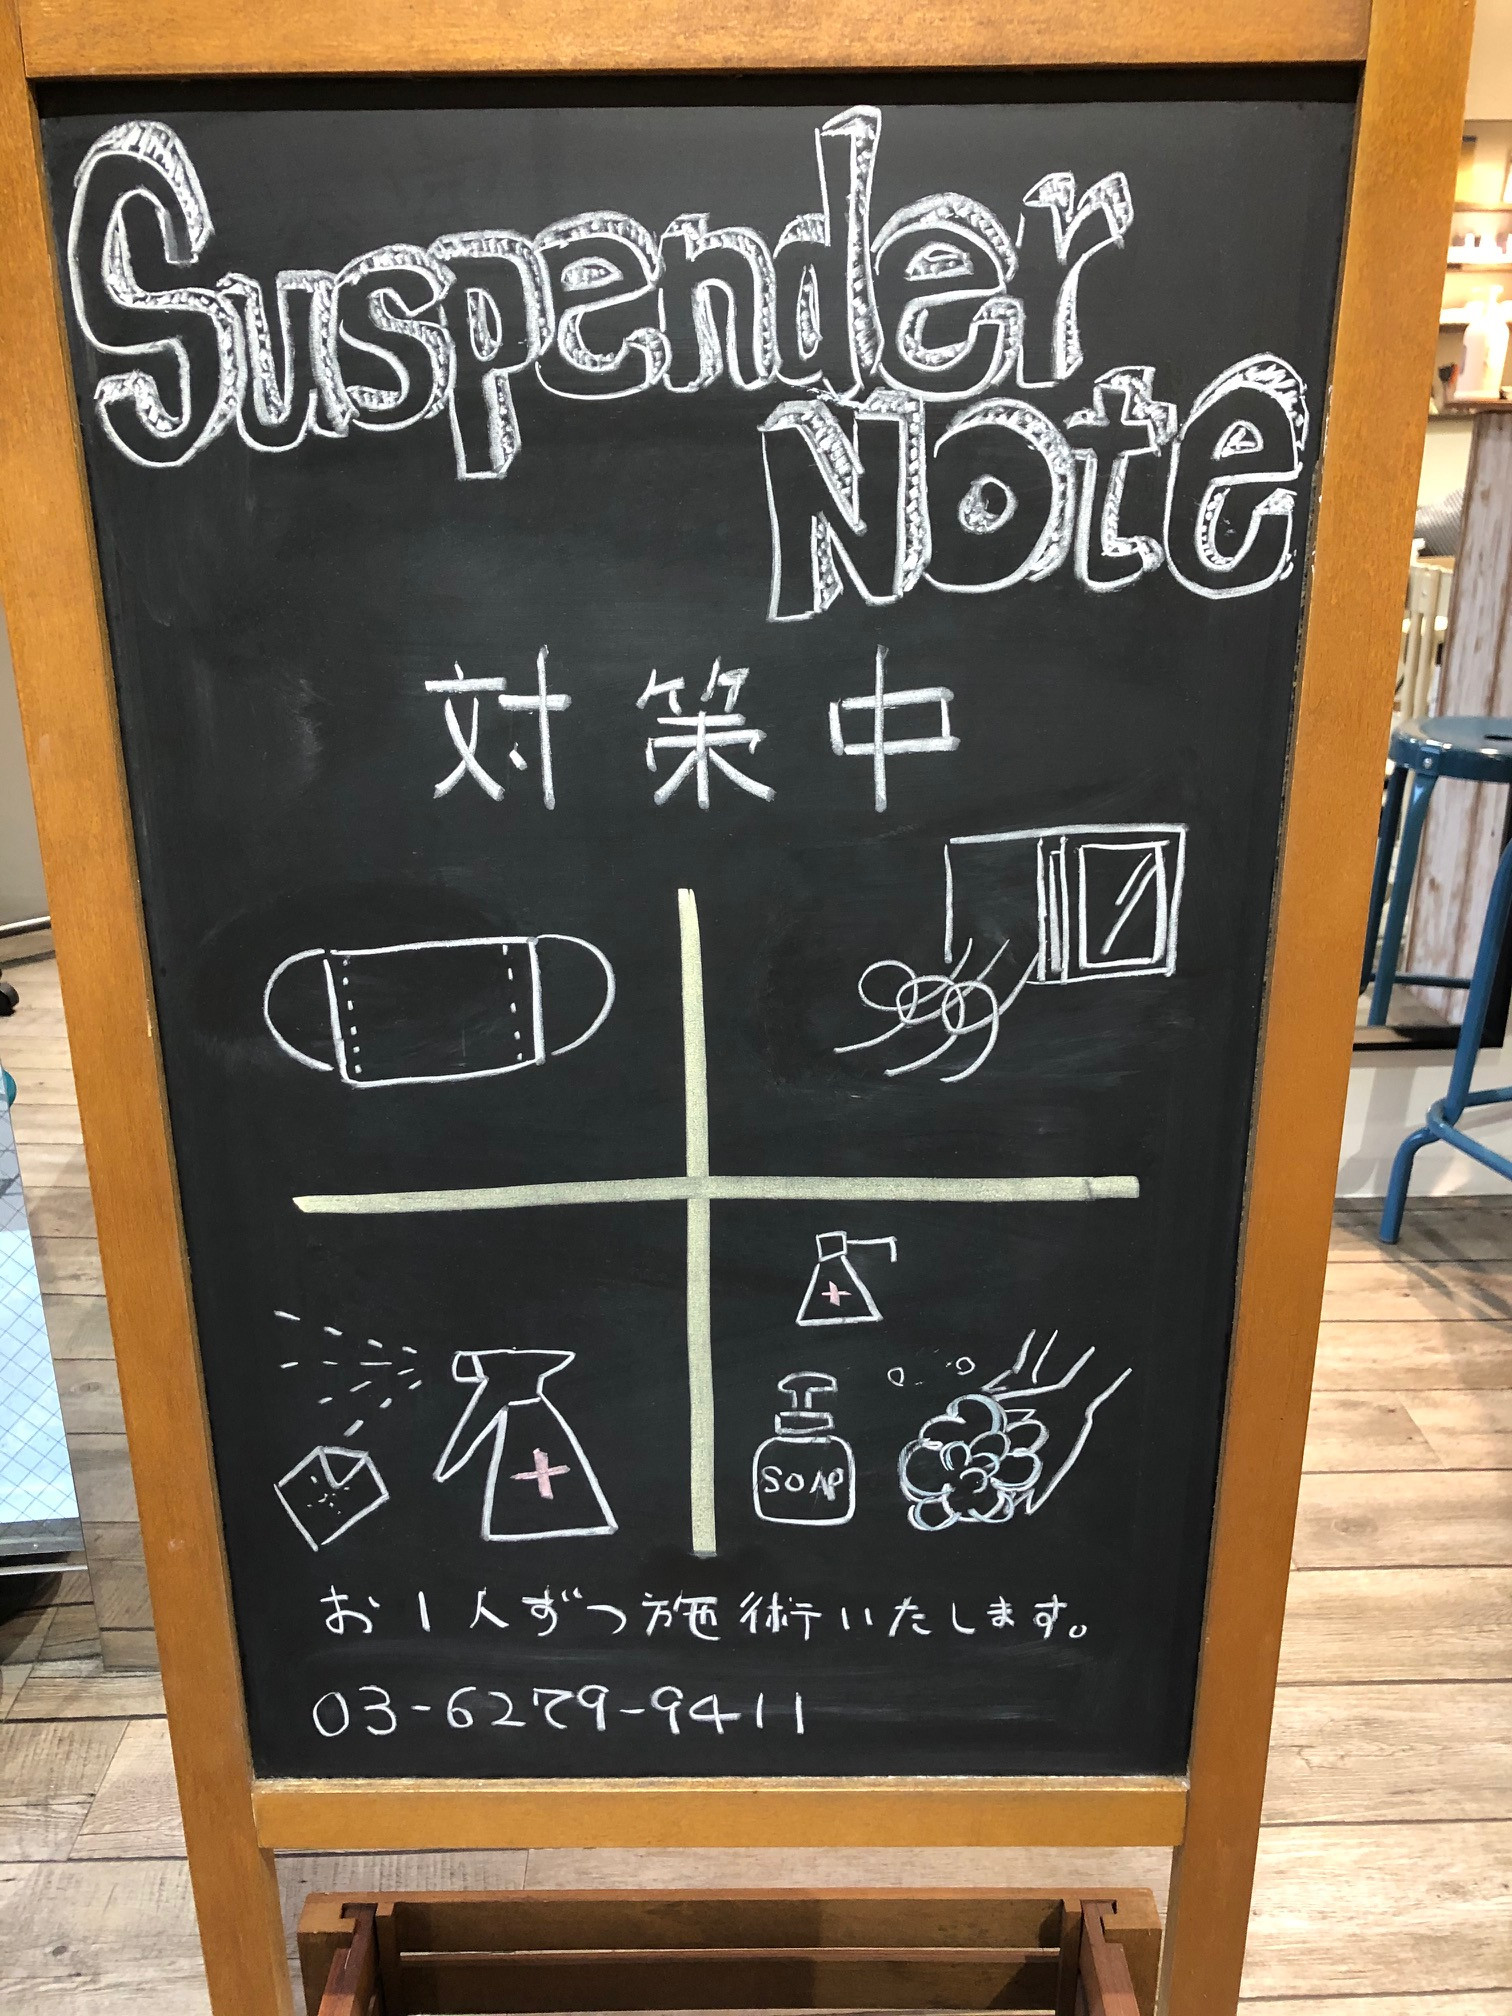 Suspender
Note
対策中
SOAP
お1人ずつ施術いたします。
03-6279-9411